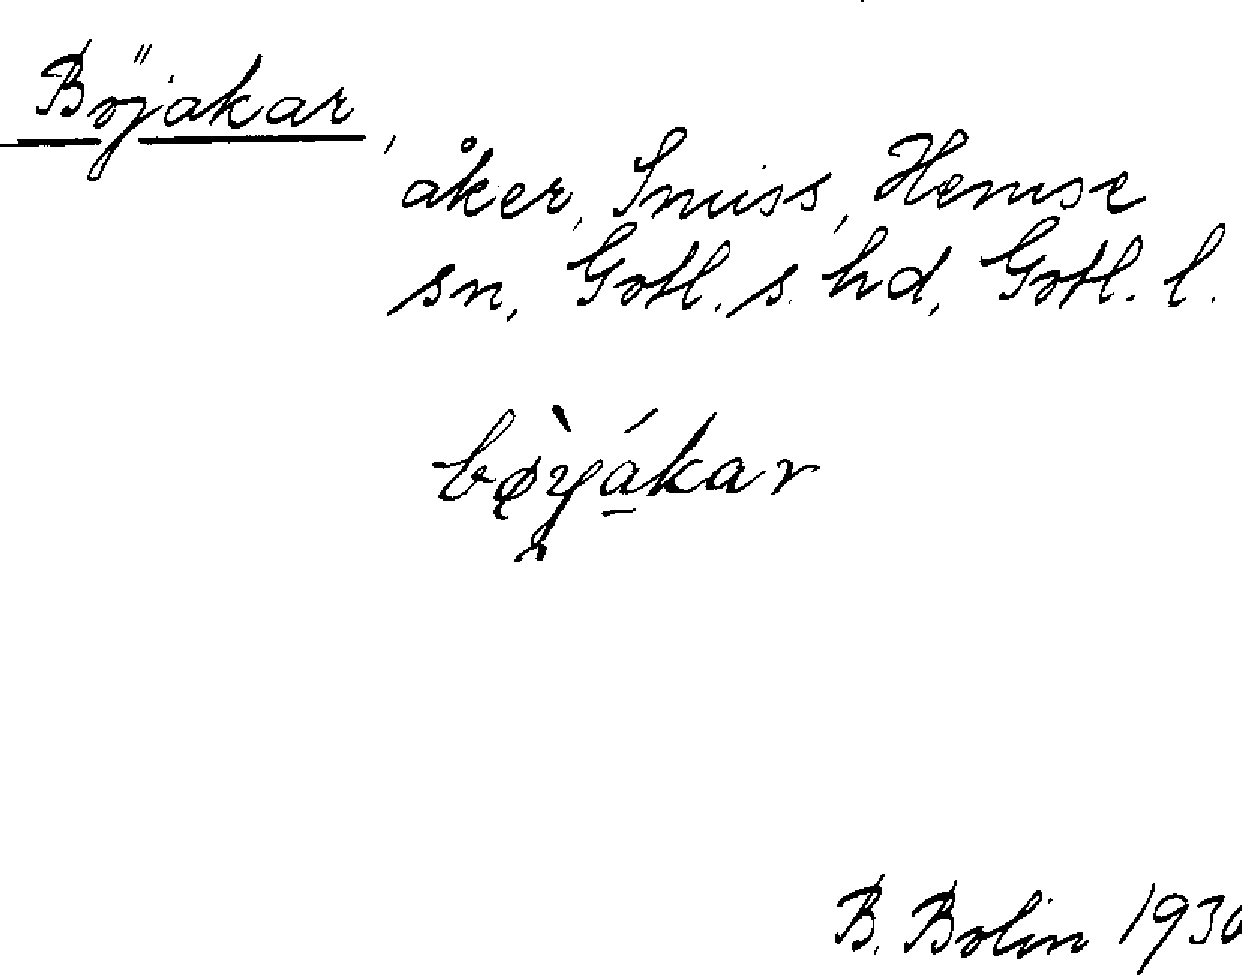 Böjakar,
åker, Smiss, Hemse
sn, Gotl. s. hd, Gotl. l.
bø̀yákar
B. Bolin 1930